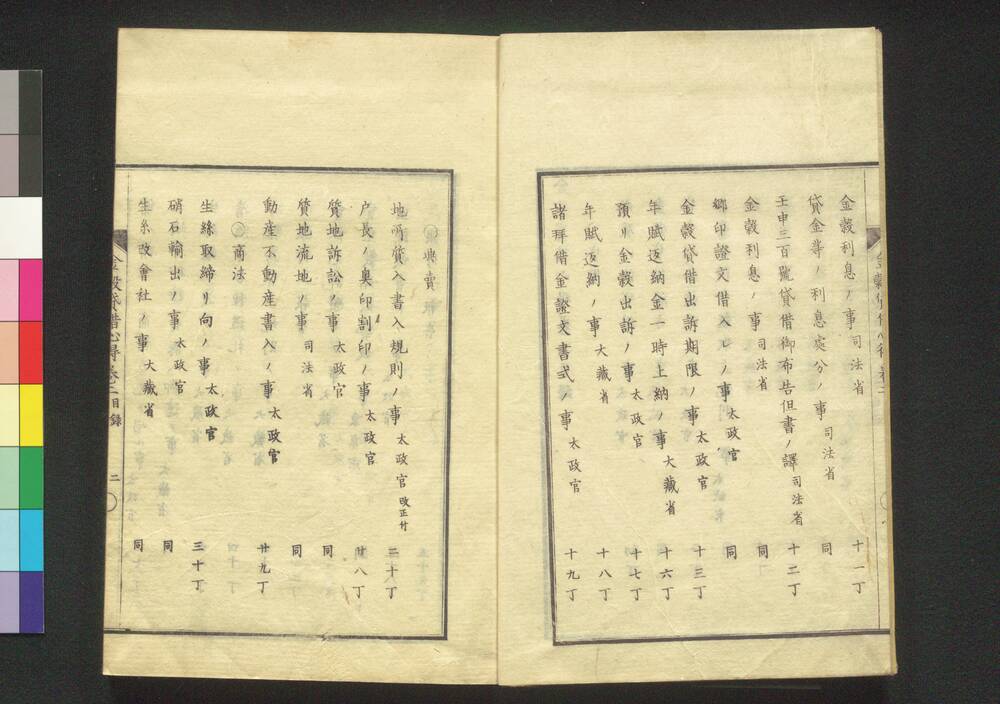 金穀利息ノ事 司法省 十一丁
貸金等ノ利息処分ノ事 司法省 同
壬申三百號貸借御布告但書ノ譯 司法省 十二丁
金穀利息ノ事 司法省 同
郷印證文借入レノ事 太政官 同
金穀貸借出訴期限ノ事 太政官 十三丁
年賦返納金一時上納ノ事 大藏省 十六丁
預リ金穀出訴ノ事 太政官 十七丁
年賦返納ノ事 大藏省 十八丁
諸拜借金證文書式ノ事 太政官 十九丁
典賣
地所質入書入規則ノ事 太政官 改正付 二十丁
户長ノ奥印割印ノ事 太政官 廿八丁
質地訴訟ノ事 太政官 同
質地流地ノ事 司法省 同
動産不動産書入ノ事 太政官 廿九丁
商法
生絲取締リ向ノ事 太政官 三十丁
硝石輸出ノ事 太政官 同
生糸改會社ノ事 大藏省 同
金穀貸借心得卷二目錄 二